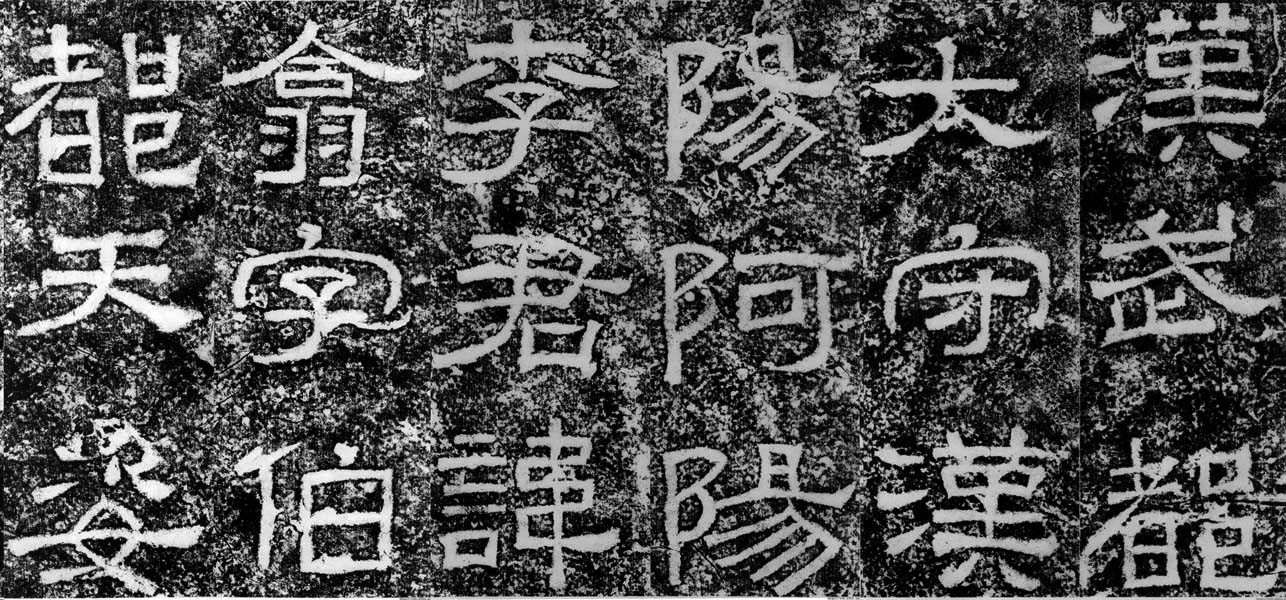 漢武都
太守漢
陽阿陽
李君諱
翕字伯
都天姿